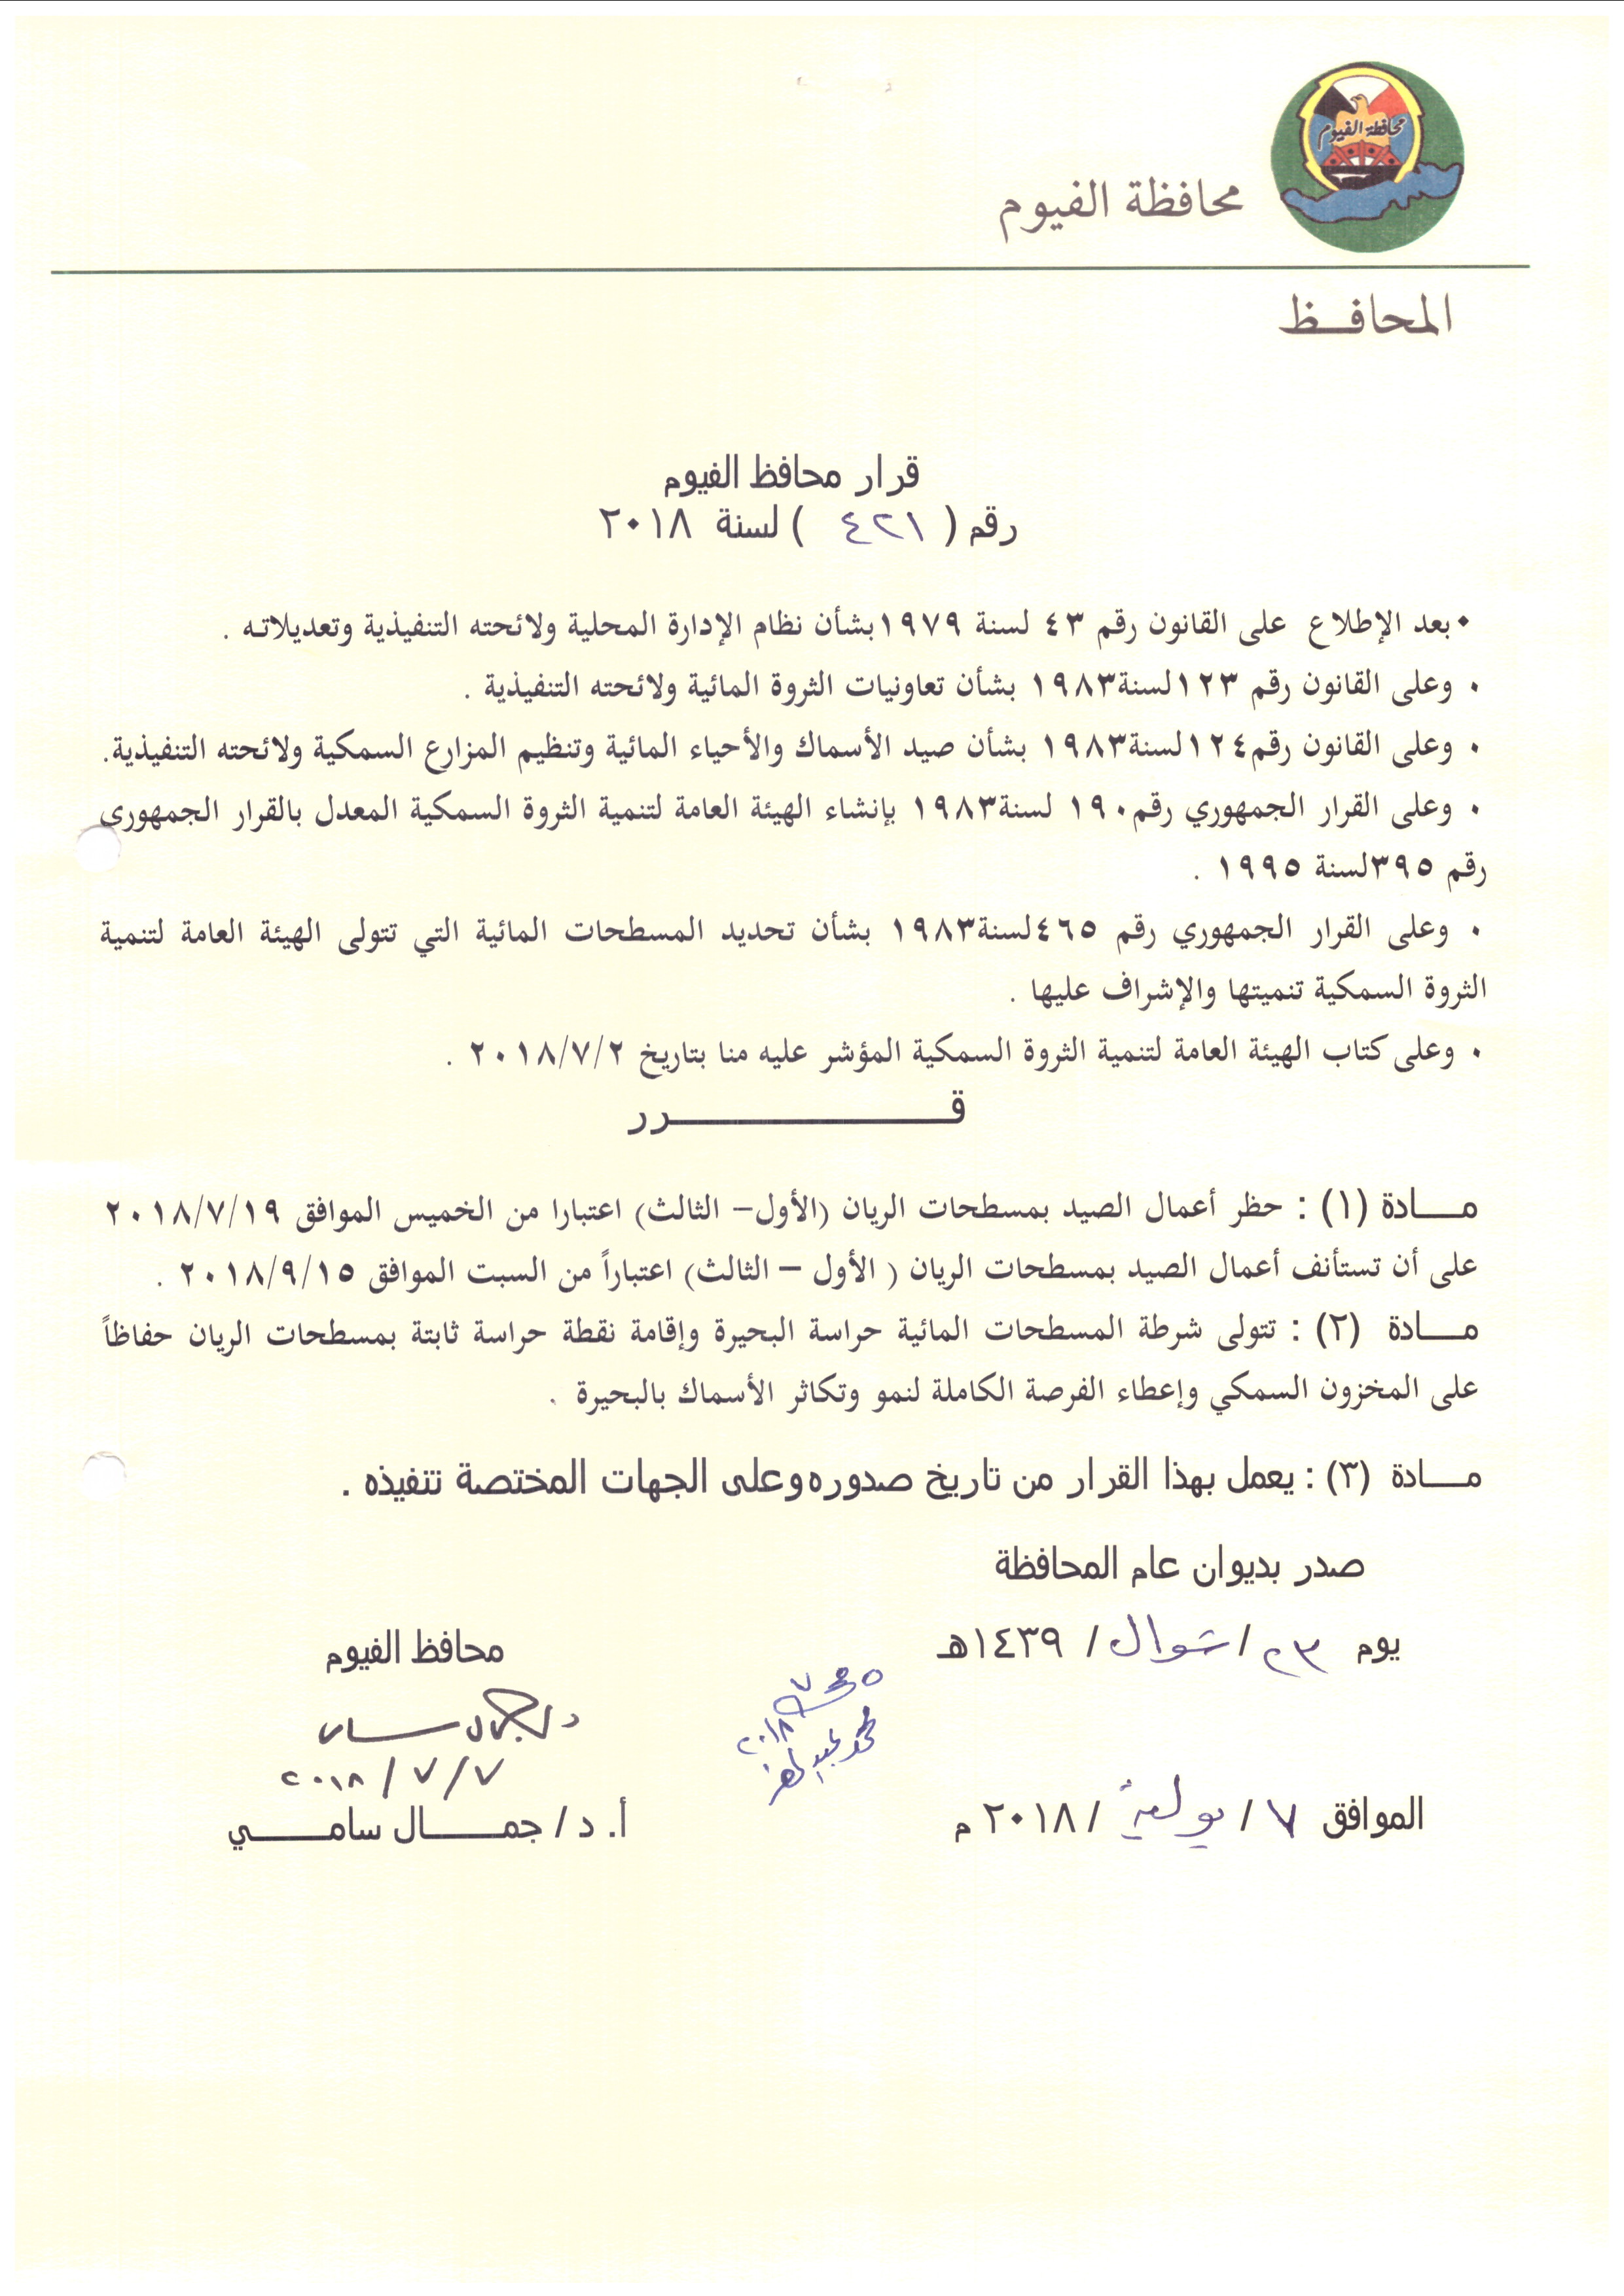 محافظة الفيوم
محافظة الفيوم
المحافــظ
قرار محافظ الفيوم
رقم ( ٤٢١ ) لسنة ٢٠١٨
• بعد الإطلاع على القانون رقم ٤٣ لسنة ١٩٧٩ بشأن نظام الإدارة المحلية ولائحته التنفيذية وتعديلاته .
• وعلى القانون رقم ١٢٣ لسنة١٩٨٣ بشأن تعاونيات الثروة المائية ولائحته التنفيذية .
• وعلى القانون رقم١٢٤ لسنة١٩٨٣ بشأن صيد الأسماك والأحياء المائية وتنظيم المزارع السمكية ولائحته التنفيذية.
• وعلى القرار الجمهوري رقم١٩٠ لسنة١٩٨٣ بإنشاء الهيئة العامة لتنمية الثروة السمكية المعدل بالقرار الجمهوري
رقم ٣٩٥لسنة ١٩٩٥ .
• وعلى القرار الجمهوري رقم ٤٦٥لسنة١٩٨٣ بشأن تحديد المسطحات المائية التي تتولى الهيئة العامة لتنمية
الثروة السمكية تنميتها والإشراف عليها .
• وعلى كتاب الهيئة العامة لتنمية الثروة السمكية المؤشر عليه منا بتاريخ ٢٠١٨/٧/٢ .
قــــــــــــرر
مــــادة (١) : حظر أعمال الصيد بمسطحات الريان (الأول– الثالث) اعتبارا من الخميس الموافق ٢٠١٨/٧/١٩
على أن تستأنف أعمال الصيد بمسطحات الريان ( الأول – الثالث) اعتباراً من السبت الموافق ٢٠١٨/٩/١٥ .
مــــادة (٢) : تتولى شرطة المسطحات المائية حراسة البحيرة وإقامة نقطة حراسة ثابتة بمسطحات الريان حفاظاً
على المخزون السمكي وإعطاء الفرصة الكاملة لنمو وتكاثر الأسماك بالبحيرة .
مــــادة (٣) : يعمل بهذا القرار من تاريخ صدوره وعلى الجهات المختصة تنفيذه .
صدر بديوان عام المحافظة
يوم ٢٣ / شوال / ١٤٣٩هـ
محافظ الفيوم
٢٠١٨/٧/٧
الموافق ٧ / يولية / ٢٠١٨ م
أ. د/ جمــــال سامــــي